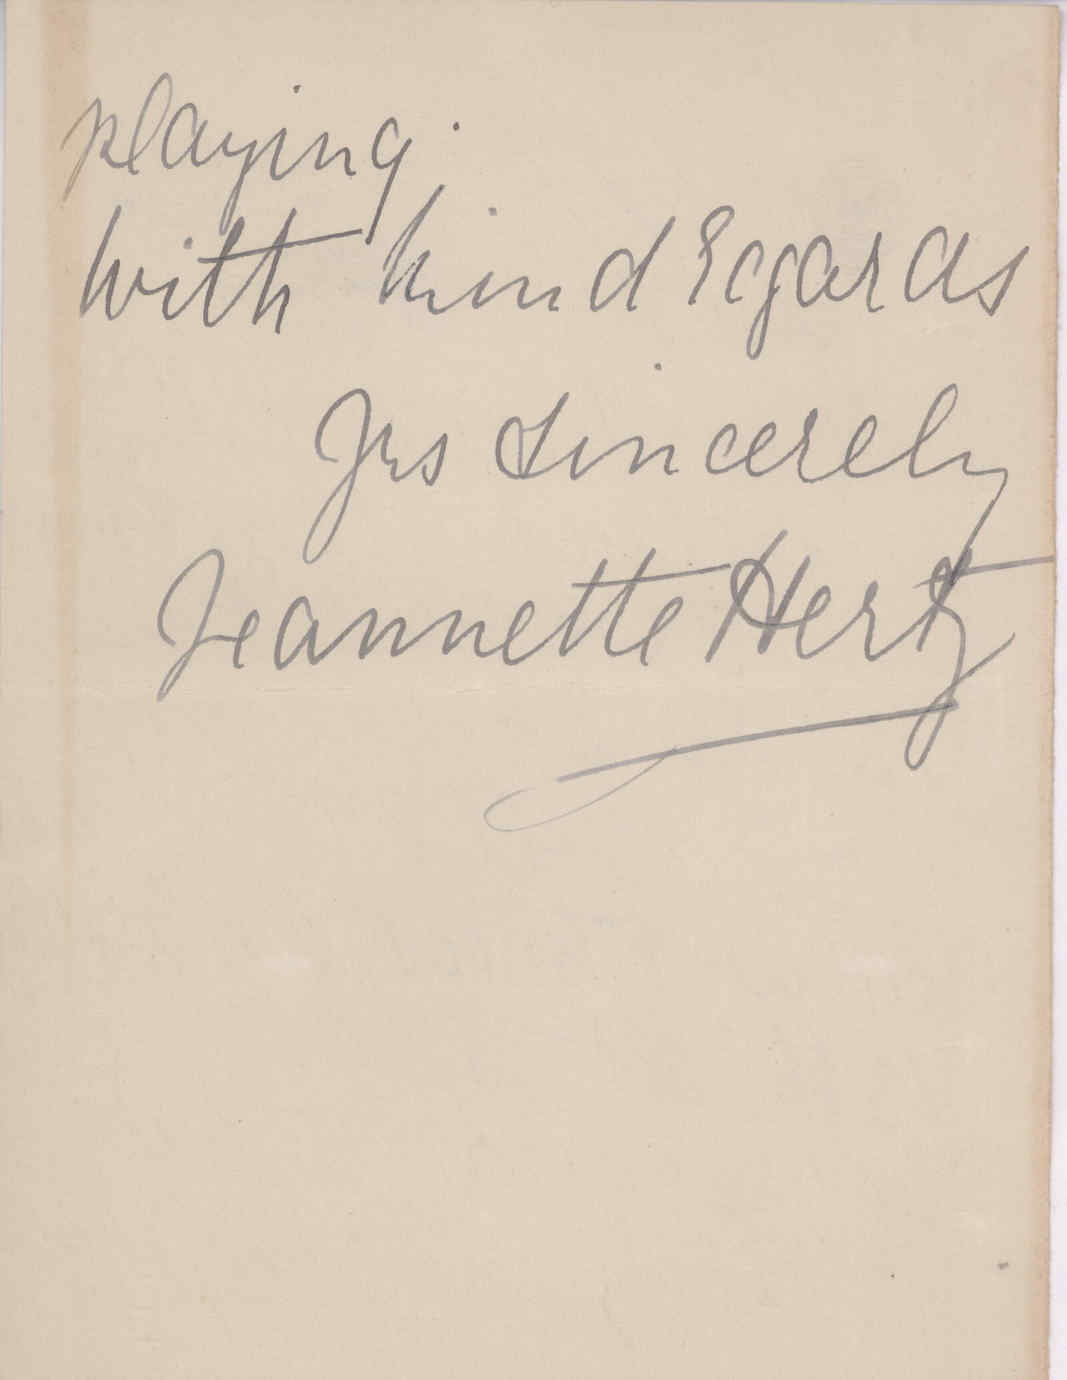 playing.
With kind regards
Yrs sincerely
Jeannette Hertz